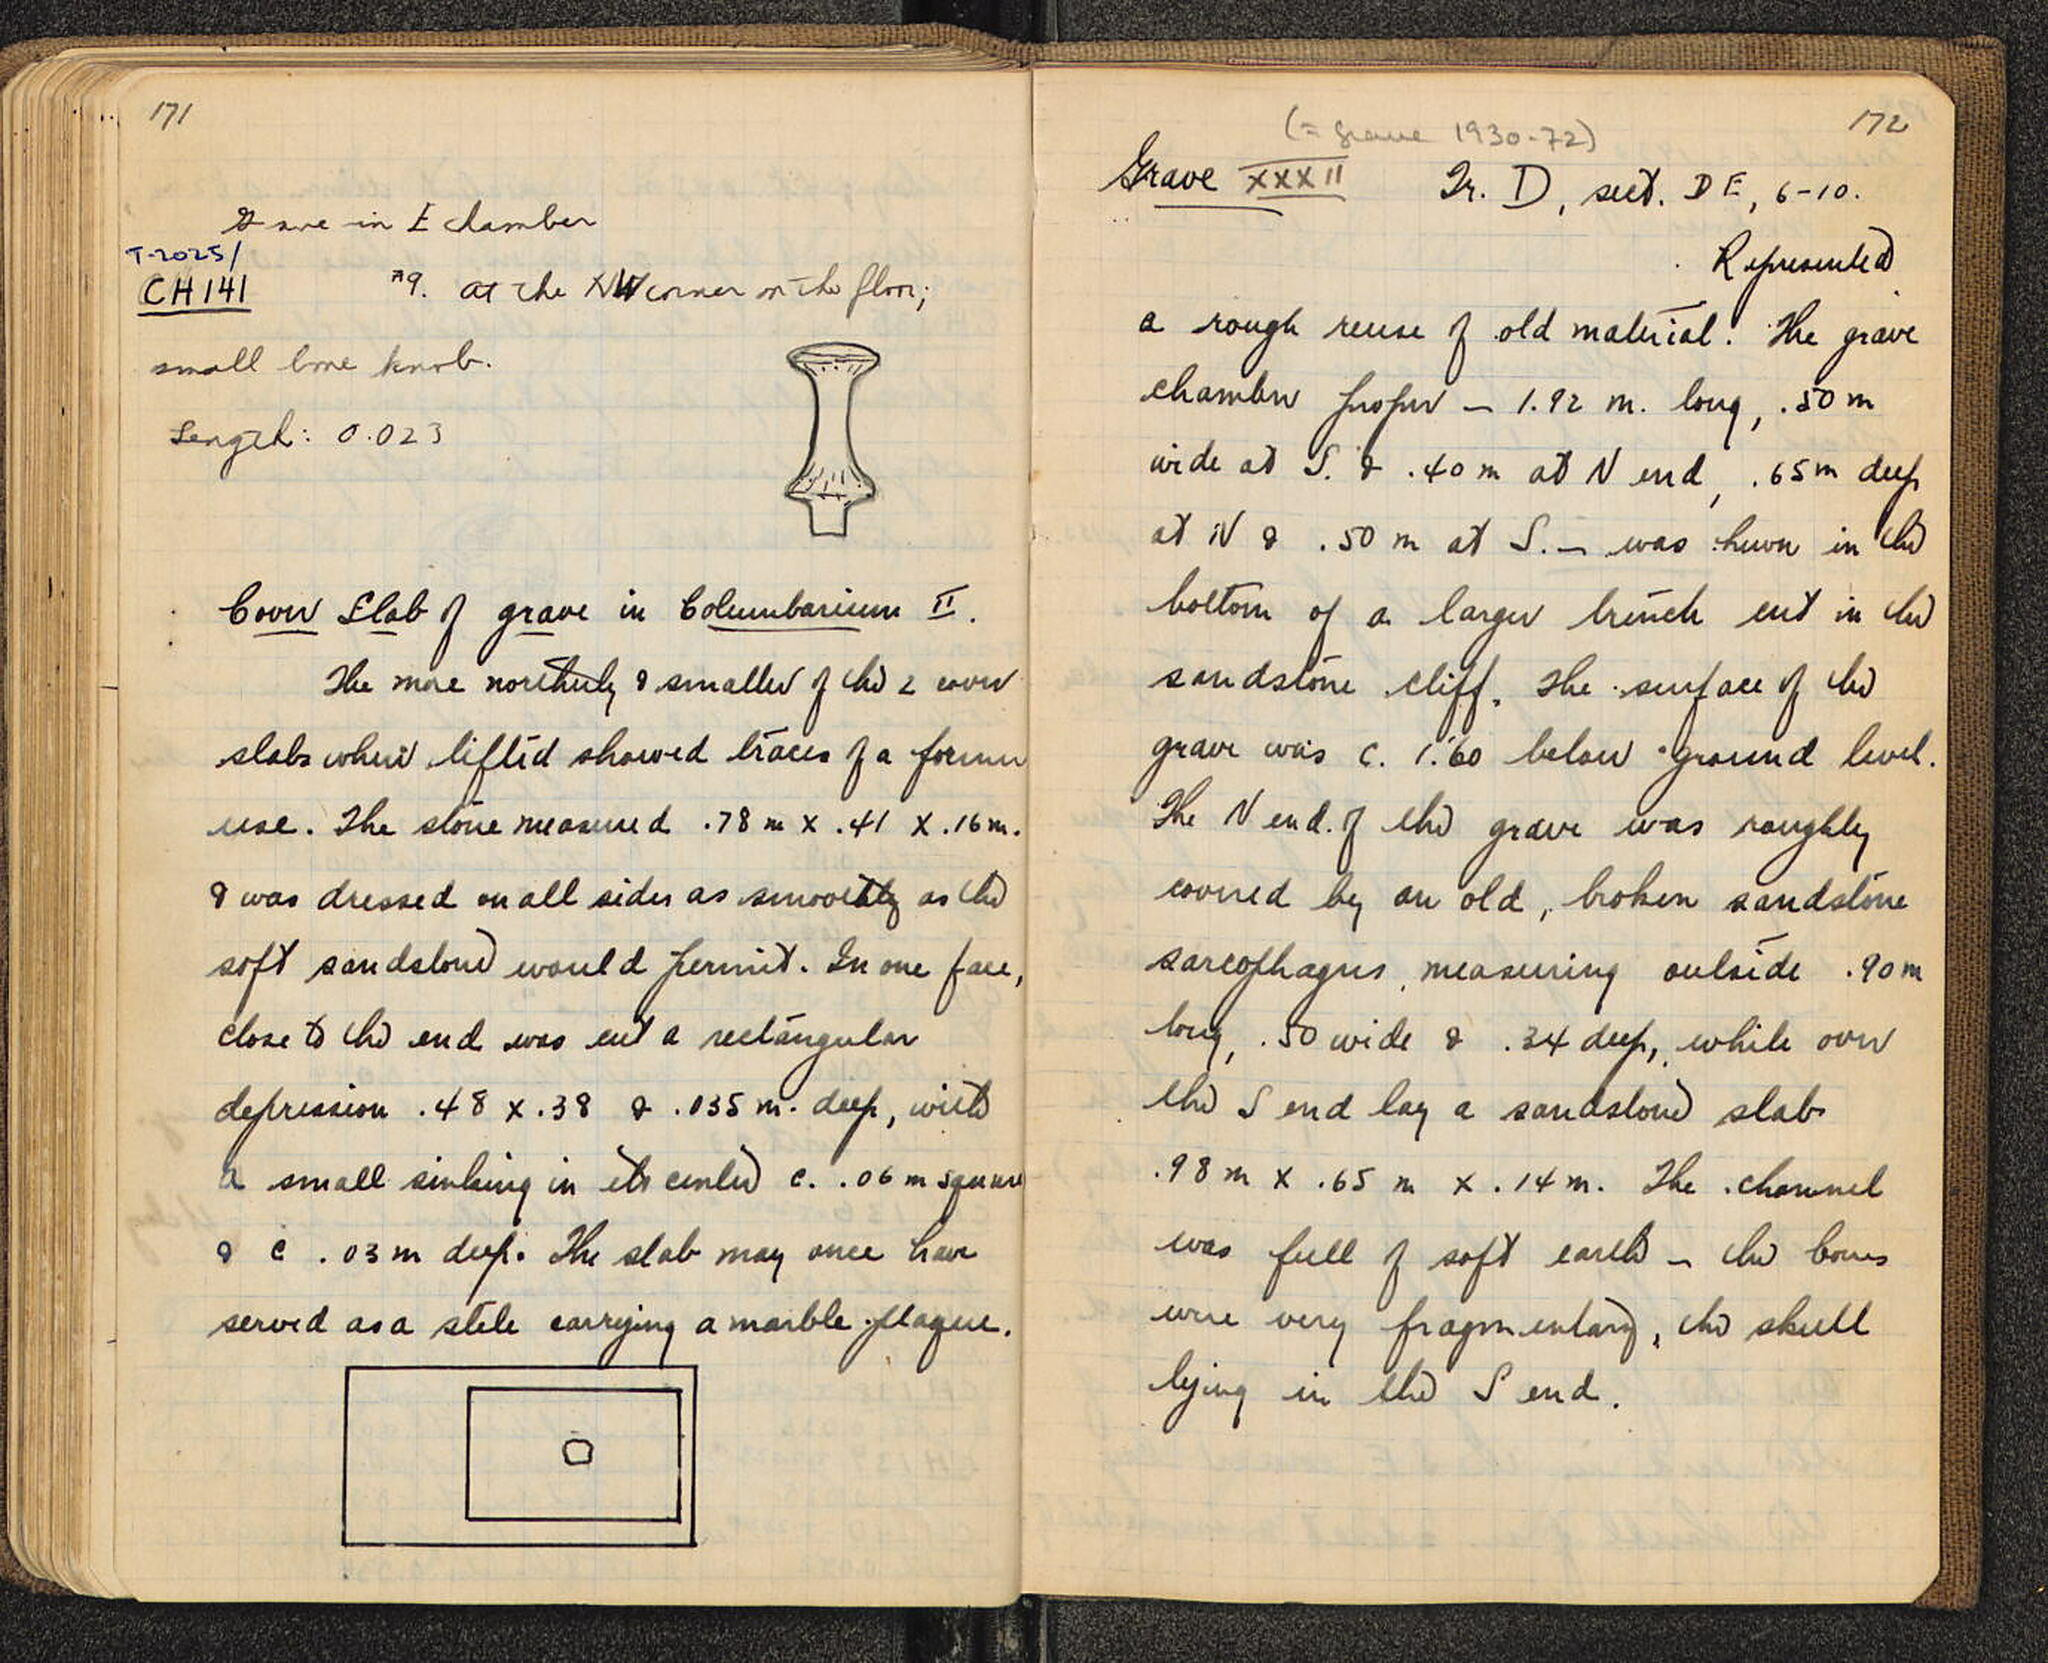 171
Grave in E chamber
T-2025/
CH 141
#9. at the NW corner on the floor;
small bone knob.
Length: 0.023
Cover Slab of grave in Columbarium II.
The more northerly & smaller of the 2 cover
slabs when lifted showed traces of a former
use. The stone measured .78 m x .41 x .16 m.
& was dressed on all sides as smoothly as the
soft sandstone would permit. In one face,
close to the end was cut a rectangular
depression .48 x .38 & .035 m. deep, with
a small sinking in its center c. .06 m square
& c .03 m deep. The slab may once have
served as a stele carrying a marble plaque.
172
(= grave 1930-72)
Grave XXXII Tr. D, sect. DE, 6-10.
Represented
a rough reuse of old material. The grave
chamber proper – 1.92 m. long, .50 m
wide at S. & .40 m at N end, .65 m deep
at N & .50 m at S. – was hewn in the
bottom of a larger trench cut in the
sandstone cliff. The surface of the
grave was c. 1.60 below ground level.
The N end of the grave was roughly
covered by an old, broken sandstone
sarcophagus, measuring outside .90 m
long, .50 wide & .34 deep, while over
the S end lay a sandstone slab
.98 m x .65 m x .14 m. The channel
was full of soft earth – the bones
were very fragmentary, the skull
lying in the S end.